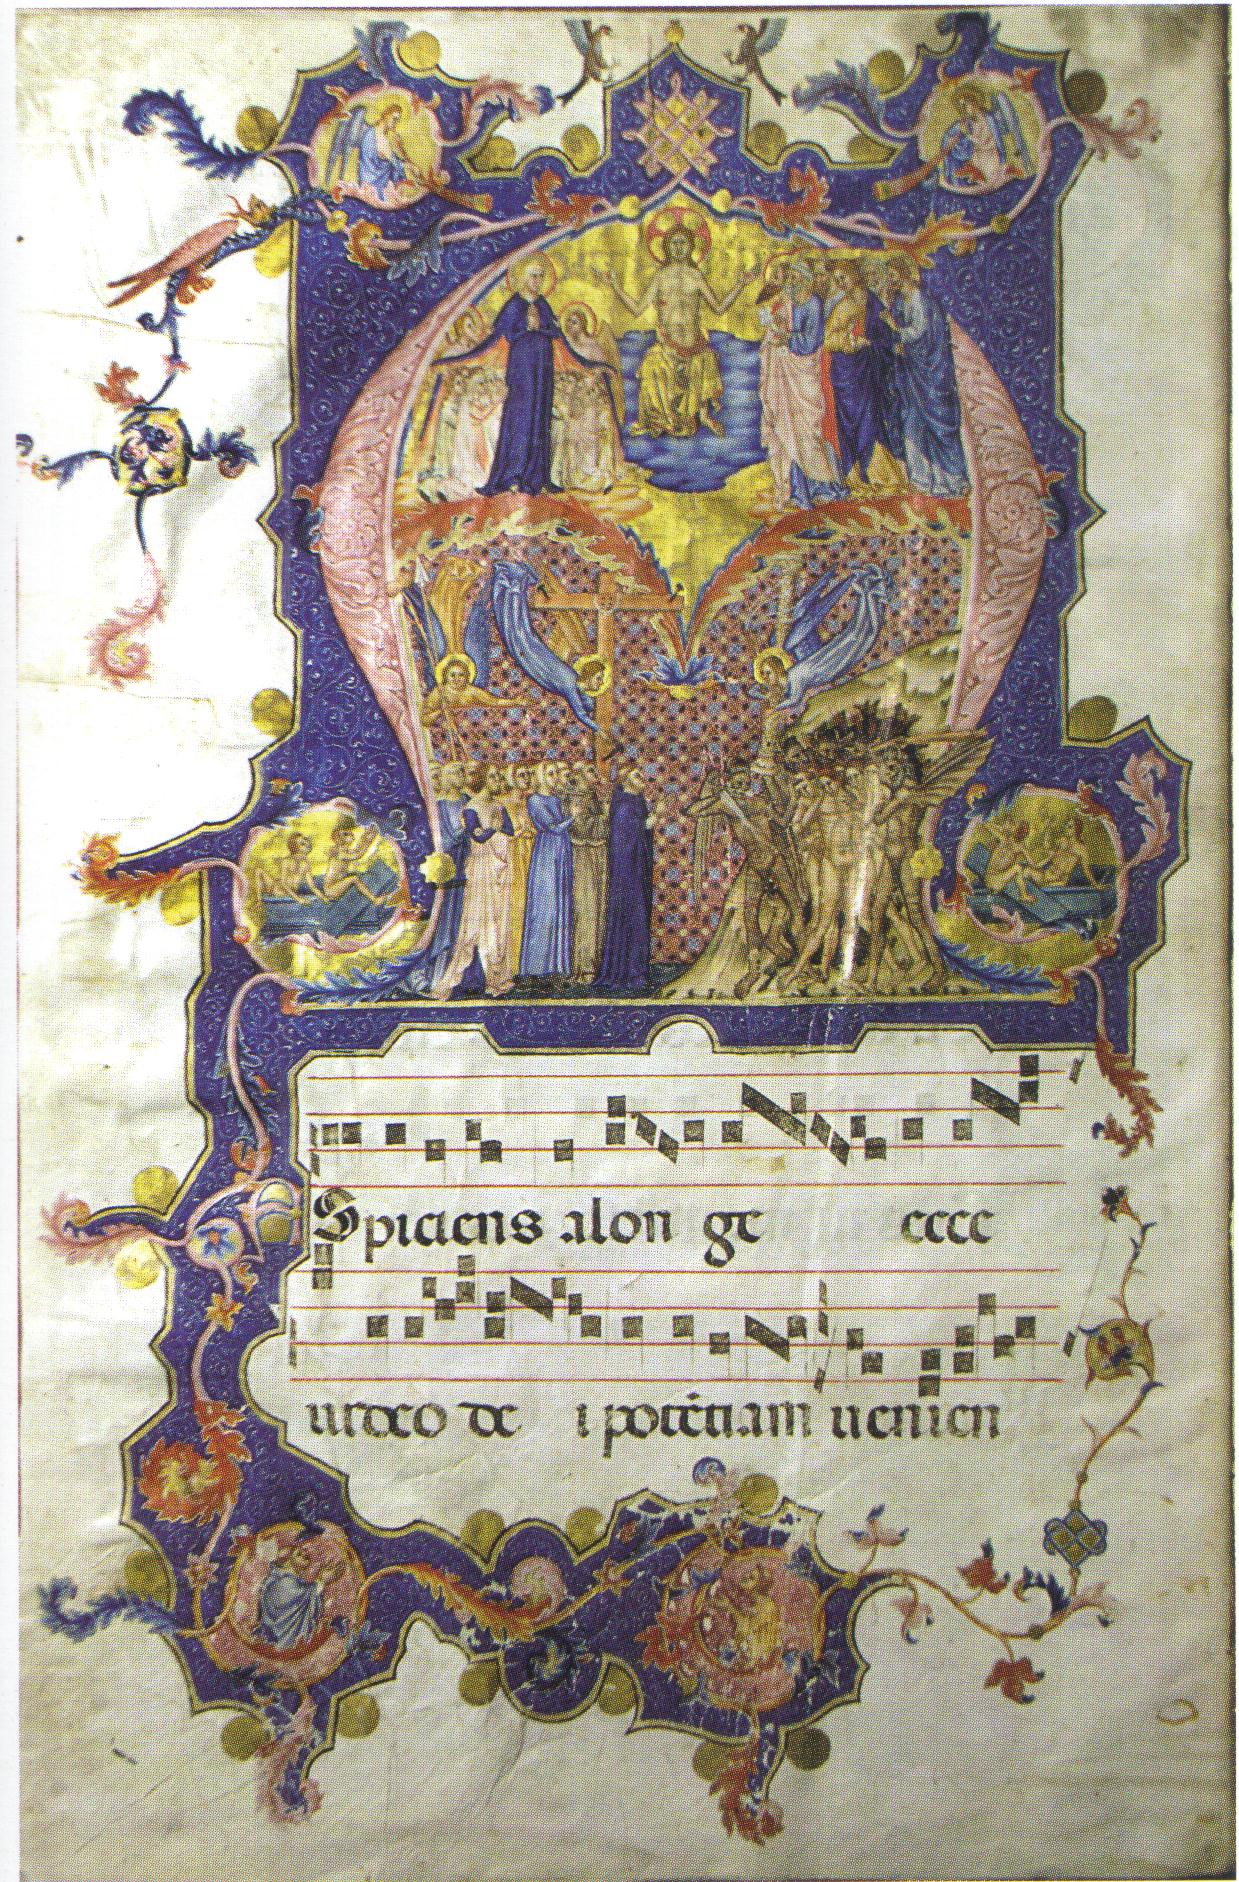 Spiciens alon ge eccc
urdeo de i potētiam uenien